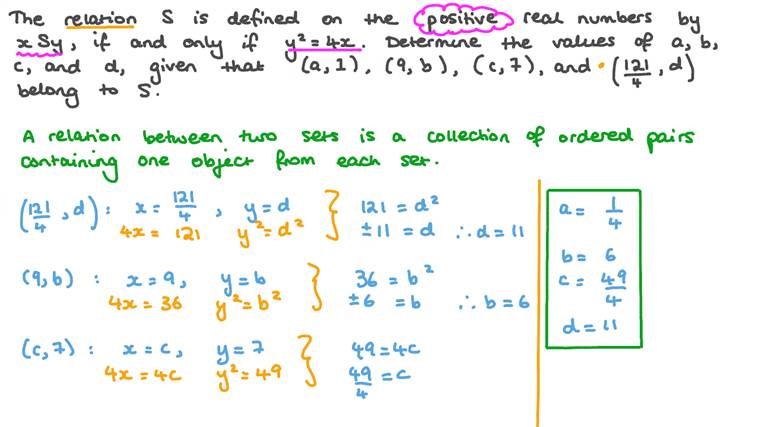 The relation S is defined on the positive real numbers by
x S y, if and only if y² = 4x. Determine the values of a, b,
c, and d, given that (a, 1), (9, b), (c, 7), and (121/4, d)
belong to S.
A relation between two sets is a collection of ordered pairs
containing one object from each set.
(121/4, d) : x = 121/4, y = d } 121 = d²
4x = 121 y² = d² ±11 = d ∴ d = 11
(9, b) : x = 9, y = b } 36 = b²
4x = 36 y² = b² ±6 = b ∴ b = 6
(c, 7) : x = c, y = 7 } 49 = 4c
4x = 4c y² = 49 49/4 = c
a = 1/4
b = 6
c = 49/4
d = 11